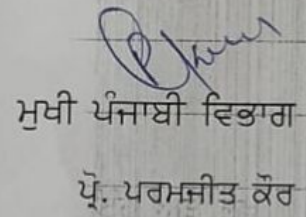 ਮੁਖੀ ਪੰਜਾਬੀ ਵਿਭਾਗ
ਪ੍ਰੋ. ਪਰਮਜੀਤ ਕੌਰ